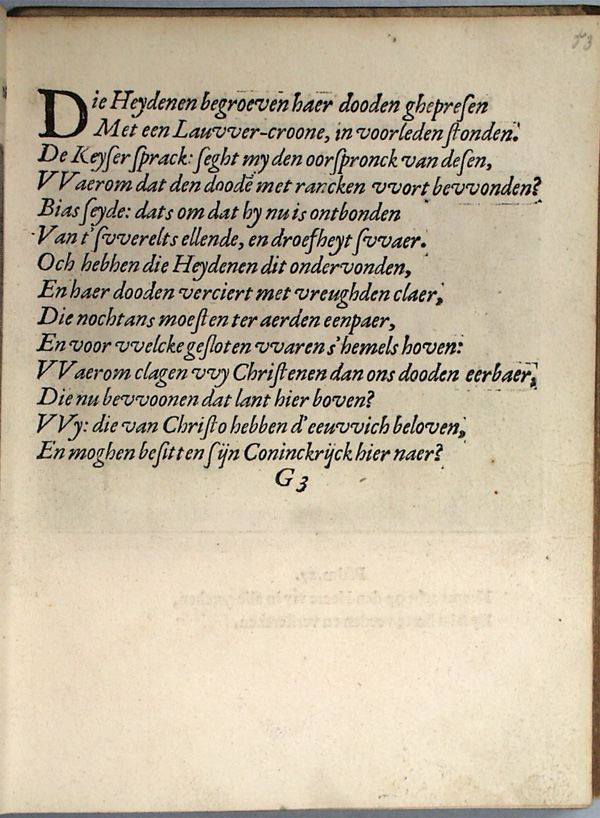 53
Die Heydenen begroeven haer dooden ghepresen
Met een Lauvver-croone, in voorleden stonden:
De Keyser sprack: seght my den oorspronck van desen,
VVaerom dat den doodē met rancken vvort bevvonden?
Bias seyde: dats om dat hy nu is ontbonden
Van t'svverelts ellende, en droefheyt svvaer.
Och hebhen die Heydenen dit ondervonden,
En haer dooden verciert met vreughden claer,
Die nochtans moesten ter aerden eenpaer,
En voor vvelcke gesloten vvaren s'hemels hoven:
VVaerom clagen vvy Christenen dan ons dooden eerbaer,
Die nu bevvoonen dat lant hier boven?
VVy: die van Christo hebben d'eeuvvich beloven,
En moghen besitten sijn Coninckrijck hier naer?
G 3